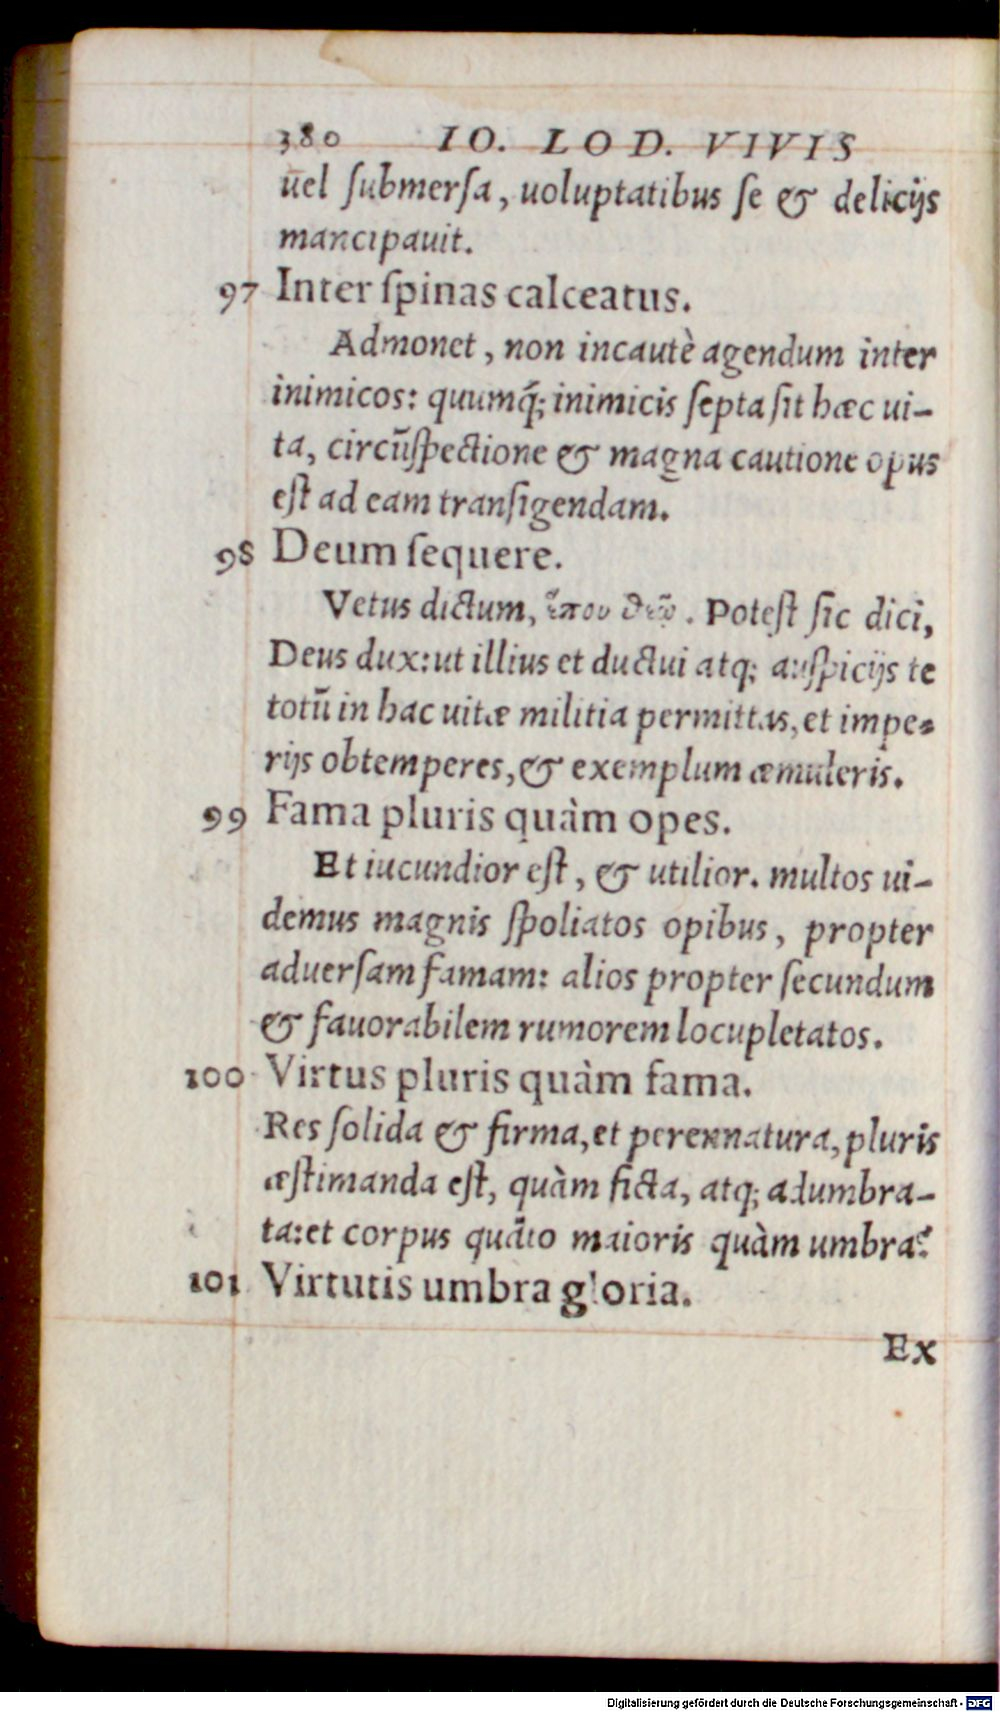 380 IO. LOD. VIVIS
uel ſubmerſa, uoluptatibus ſe & delicijs
mancipauit.
97 Inter ſpinas calceatus.
Admonet, non incautè agendum inter
inimicos: quumq́; inimicis ſepta ſit hæc ui-
ta, circũſpectione & magna cautione opus
eſt ad eam tranſigendam.
98 Deum ſequere.
Vetus dictum, ἕπου θεῷ. Poteſt ſic dici,
Deus dux: ut illius et ductui atq; auſpicijs te
totũ in hac uitæ militia permittas, et impe-
rijs obtemperes, & exemplum æmuleris.
99 Fama pluris quàm opes.
Et iucundior eſt, & utilior. multos ui-
demus magnis ſpoliatos opibus, propter
aduerſam famam: alios propter ſecundum
& fauorabilem rumorem locupletatos.
100 Virtus pluris quàm fama.
Res ſolida & firma, et perennatura, pluris
æſtimanda eſt, quàm ficta, atq; adumbra-
ta: et corpus quãto maioris quàm umbra?
101 Virtutis umbra gloria.
Ex
Digitalisierung gefördert durch die Deutsche Forschungsgemeinschaft - DFG